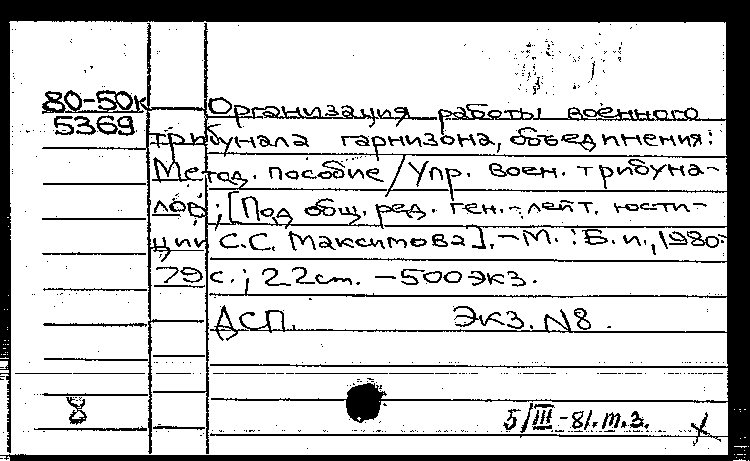 80-50к Организация работы военного
5369 трибунала гарнизона, объединения:
Метод. пособие / Упр. воен. трибуна-
лов; [Под общ. ред. ген.-лейт. юсти-
ции С.С. Максимова]. - М. : Б. и., 1980.-
79 с.; 22 см. - 500 экз.
ДСП. Экз. N8.
8
5/III-81. т.з. X